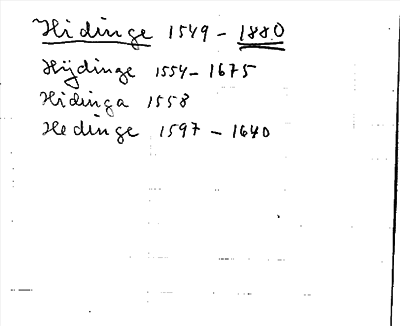 Hidinge 1549 - 1880
Hijdinge 1554 - 1675
Hidinga 1558
Hedinge 1597 - 1640